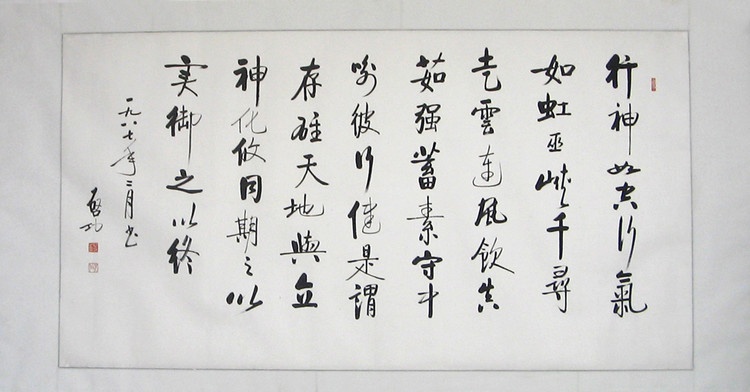 行神如空行氣
如虹巫峽千尋
走雲連風飲真
茹强蓄素守中
喻彼行健是謂
存雄天地與立
神化攸同期之以
实御之以終
一九八七年二月书
啓功